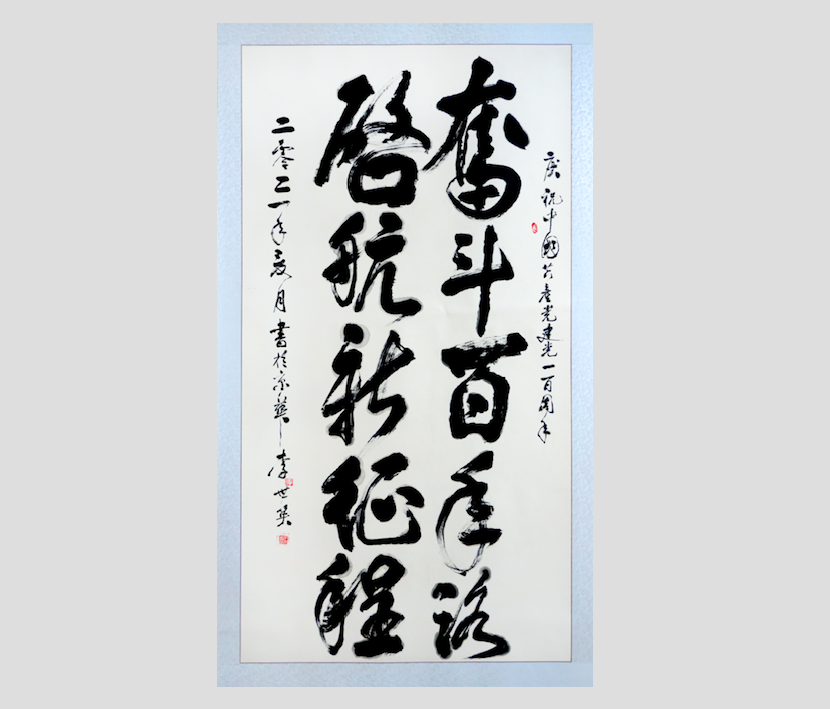 庆祝中國共產党建党一百周年
奮斗百年路
啓航新征程
二零二一年夏月書於京華李世英